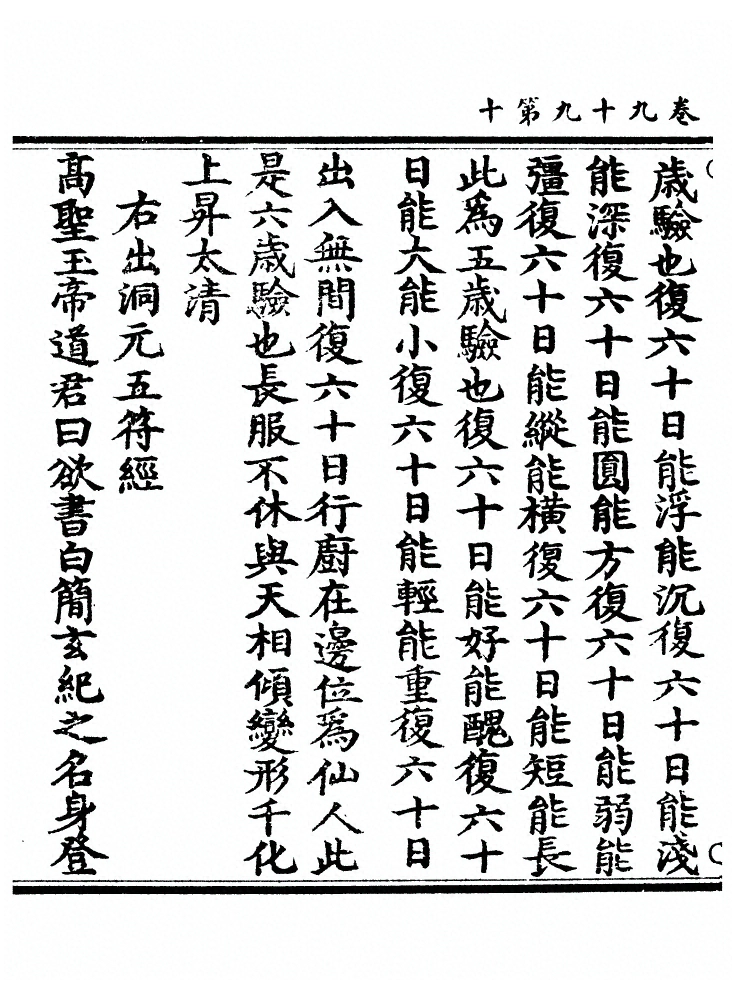 卷九十九第十
歲驗也復六十日能浮能沉復六十日能淺
能深復六十日能圓能方復六十日能弱能
彊復六十日能縱能橫復六十日能短能長
此為五歲驗也復六十日能好能醜復六十
日能大能小復六十日能輕能重復六十日
出入無間復六十日行廚在邊位為仙人此
是六歲驗也長服不休與天相傾變形千化
上昇太清
右出洞元五符經
高聖玉帝道君曰欲書白簡玄紀之名身登